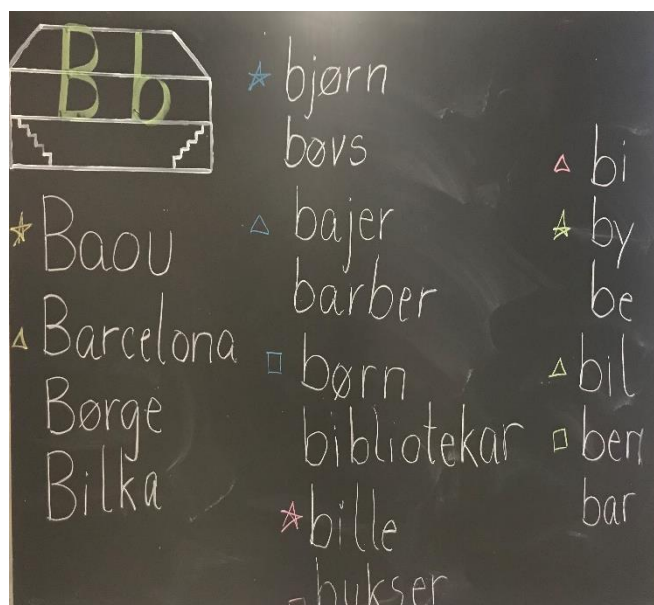 Bb
Baou
Barcelona
Børge
Bilka
bjørn
bøvs
bajer
barber
børn
bibliotekar
bille
bukser
bi
by
be
bil
ben
bar